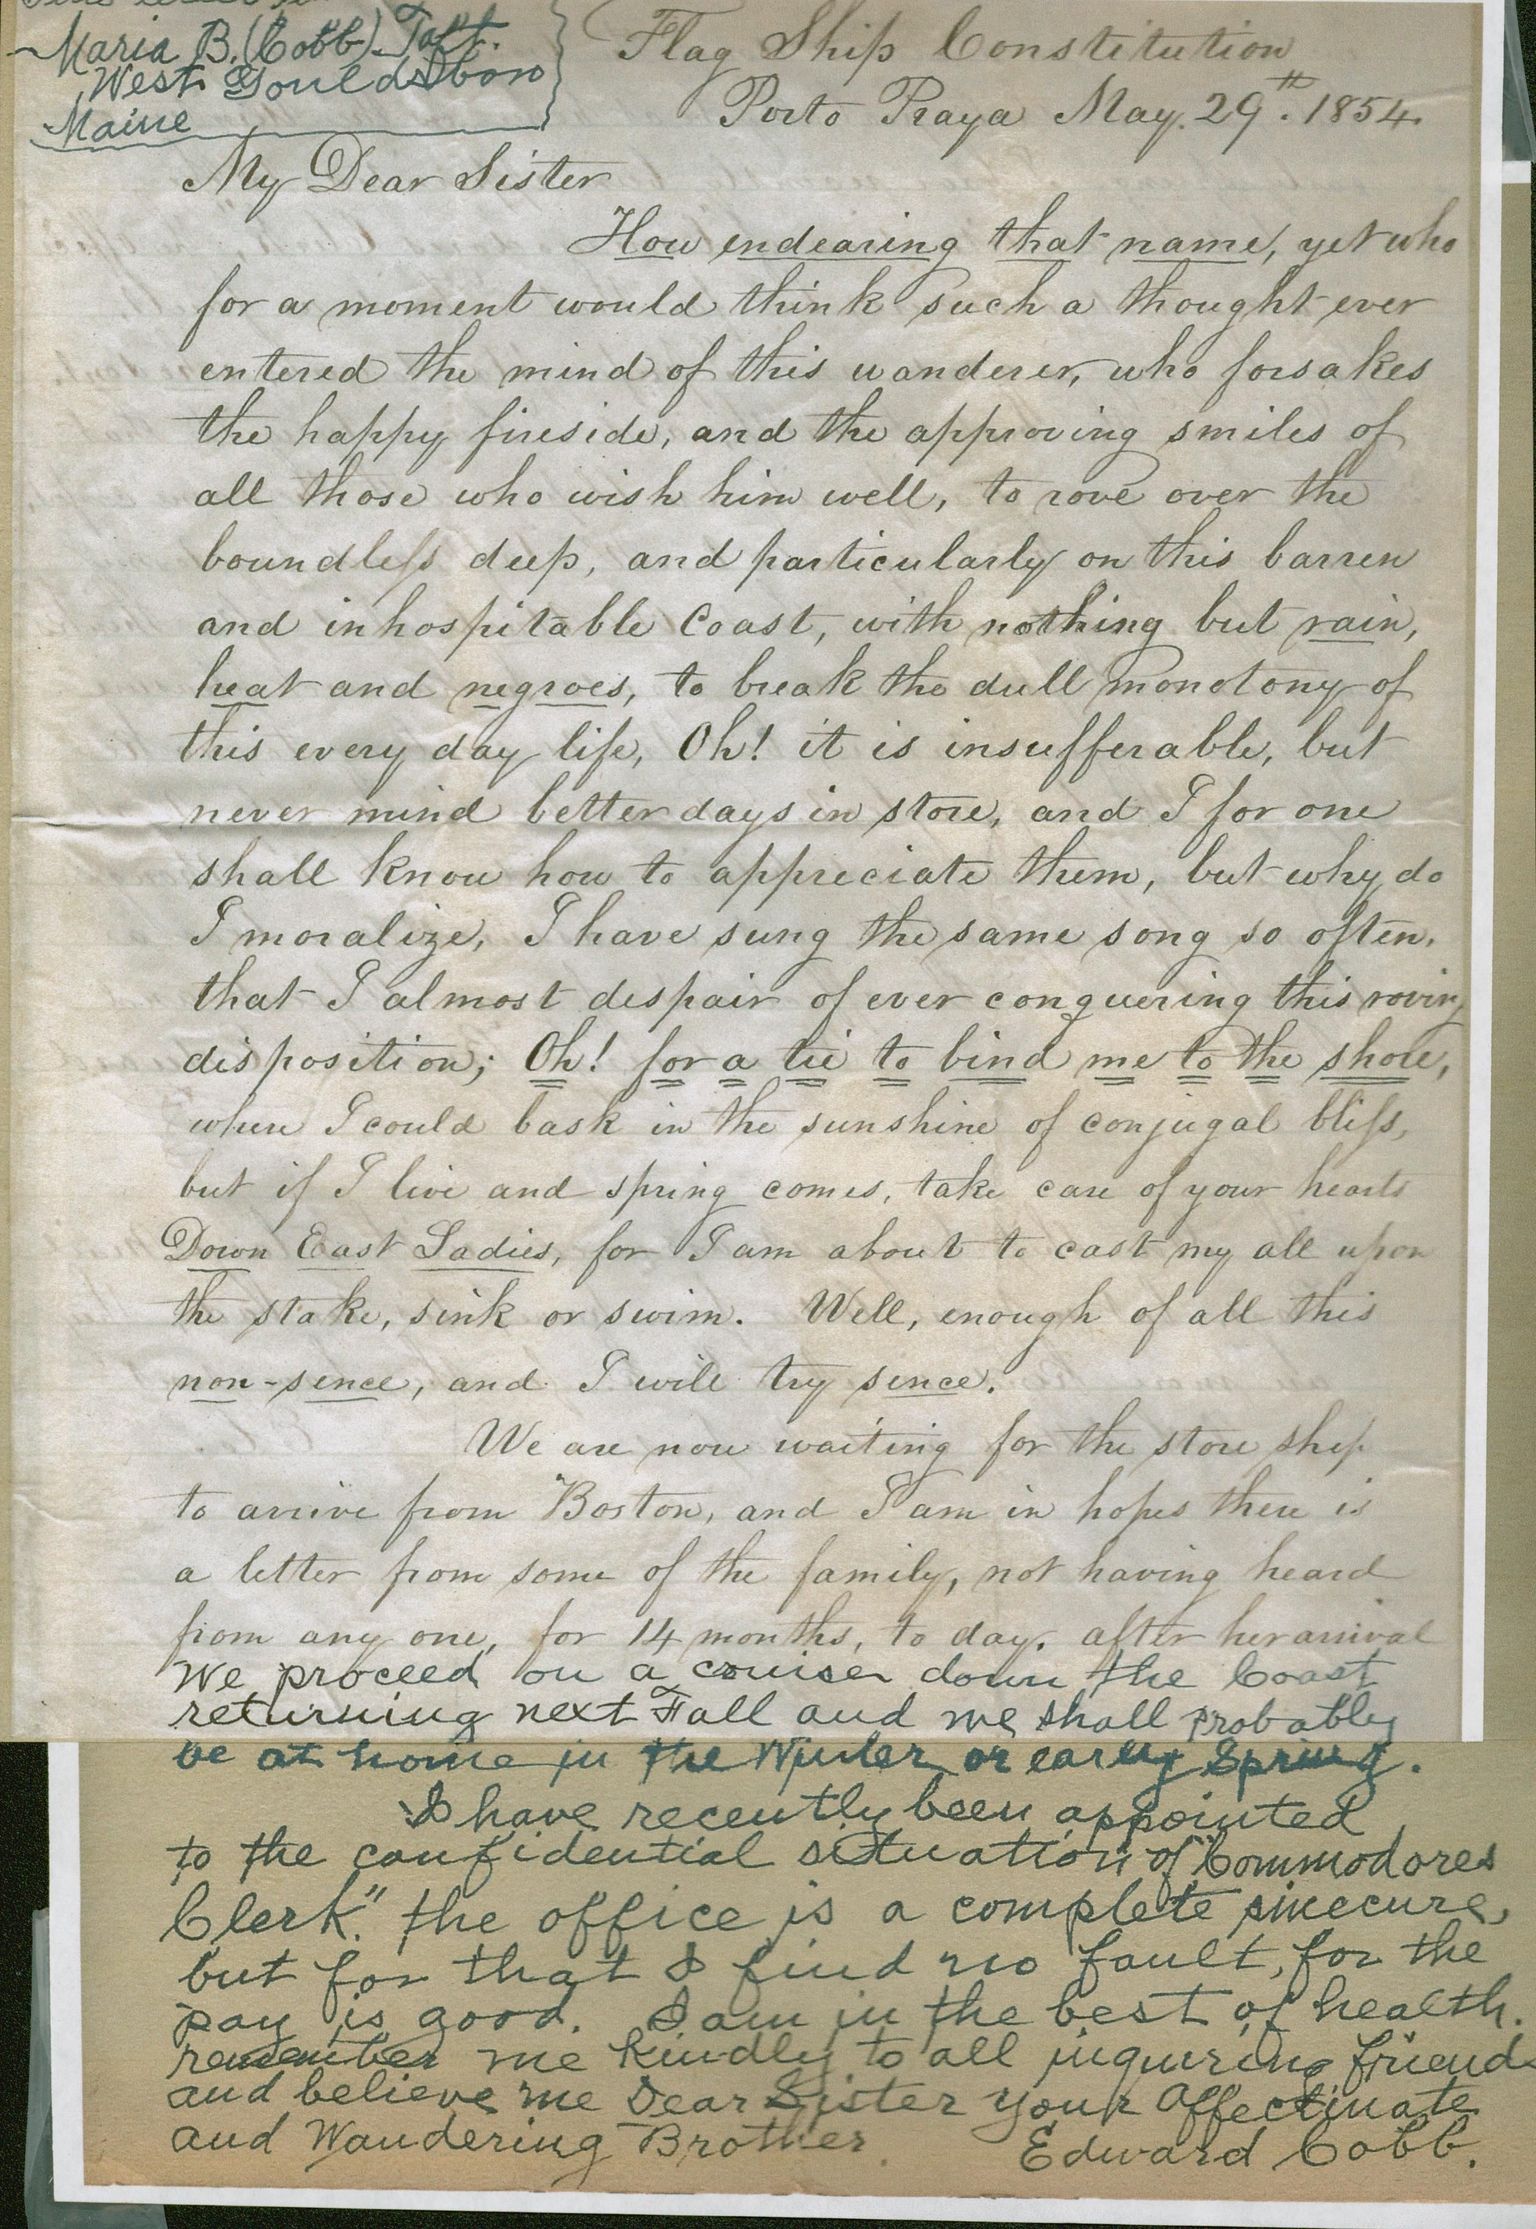 Maria B. (Cobb) Taft.
West Gouldsboro
Maine
Flag Ship Constitution
Porto Praya May. 29th. 1854.
My Dear Sister
How endearing that name, yet who
for a moment would think such a thought ever
entered the mind of this wanderer, who forsakes
the happy fireside, and the approving smiles of
all those who wish him well, to rove over the
boundless deep, and particularly on this barren
and inhospitable Coast, with nothing but rain,
heat and negroes, to break the dull monotony of
this every day life, Oh! it is insufferable, but
never mind better days in store, and I for one
shall know how to appreciate them, but why do
I moralize, I have sung the same song so often,
that I almost despair of ever conquering this roving
disposition; Oh! for a tie to bind me to the shore,
where I could bask in the sunshine of conjugal bliss,
but if I live and spring comes, take care of your hearts
Down East Ladies, for I am about to cast my all upon
the stake, sink or swim. Well, enough of all this
non-sence, and I will try sence.
We are now waiting for the store ship
to arrive from Boston, and I am in hopes there is
a letter from some of the family, not having heard
from any one, for 14 months, to day. after her arrival
We proceed on a cruise down the Coast
returning next Fall and we shall probably
be at home in the Winter or early Spring.
I have recently been appointed
to the confidential situation of "Commodores
Clerk." the office is a complete sinecure,
but for that I find no fault, for the
pay is good. I am in the best of health.
remember me kindly to all inquiring friends
and believe me Dear Sister your Affectinate
and Wandering Brother
Edward Cobb.